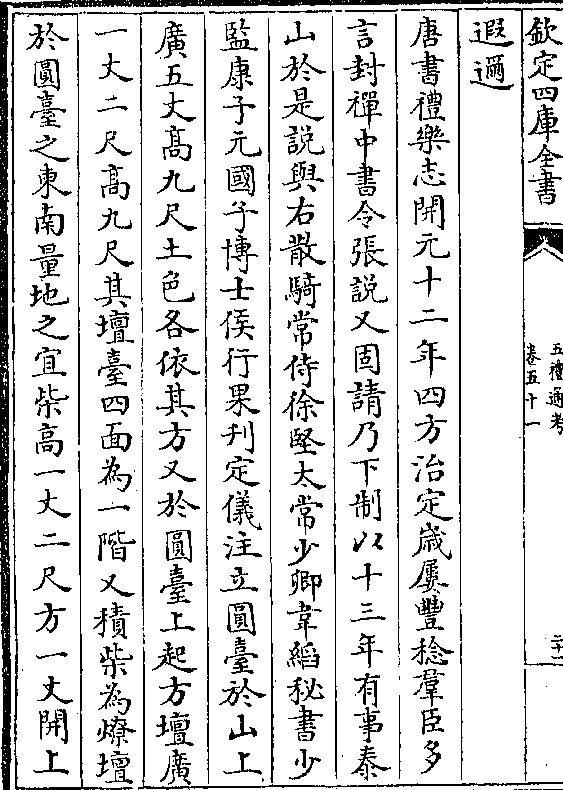 欽定四庫全書
五禮通考
卷五十一
二十一
遐邇
唐書禮樂志開元十二年四方治定嵗屢豐稔羣臣多
言封禪中書令張説又固請乃下制以十三年有事泰
山於是説與右散騎常侍徐堅太常少卿韋縚秘書少
監康子元國子博士侯行果刋定儀注立圓臺於山上
廣五丈髙九尺土色各依其方又於圓臺上起方壇廣
一丈二尺髙九尺其壇臺四面為一階又積柴為燎壇
於圓臺之東南量地之宜柴高一丈二尺方一丈開上